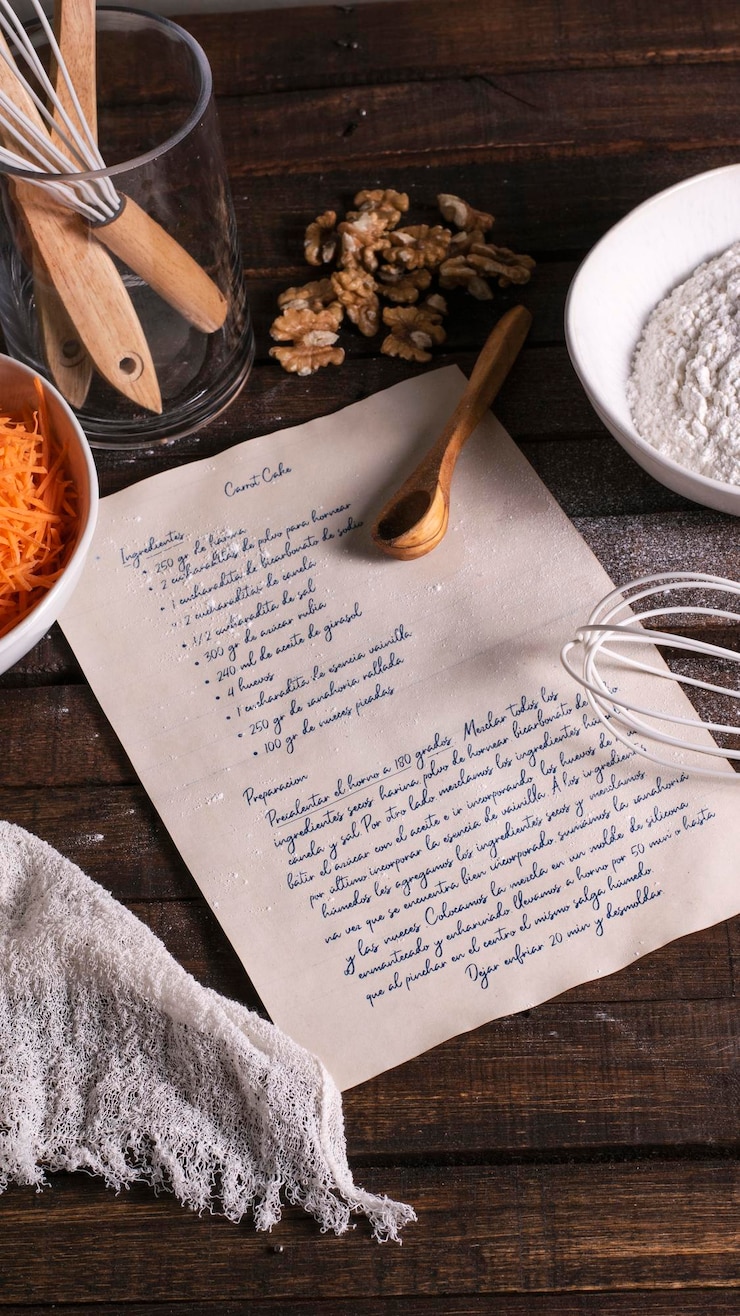 Carrot Cake
Ingredientes
• 250 gr de harina
• 2 cucharaditas de polvo para hornear
• 1 cucharadita de bicarbonato de sodio
• 2 cucharaditas de canela
• 1/2 cucharadita de sal
• 300 gr de azucar rubia
• 240 ml de aceite de girasol
• 4 huevos
• 1 cucharadita de esencia vainilla
• 250 gr de zanahoria rallada
• 100 gr de nueces picadas
Preparacion
Precalentar el horno a 180 grados. Mezclar todos los
ingredientes secos harina polvo de hornear bicarbonato de
canela y sal. Por otro lado mezclamos los ingredientes
batir el azucar con el aceite e ir incorporando los huevos de
por ultimo incorporar la esencia de vainilla. A los ingredientes
humedos les agregamos los ingredientes secos y mezclamos
na vez que se encuentra bien incorporado sumamos la zanahoria
y las nueces. Colocamos la mezcla en un molde de silicona
enmantecado y enharinado llevamos a horno por 50 min o hasta
que al pinchar en el centro el mismo salga húmedo.
Dejar enfriar 20 min y desmoldar